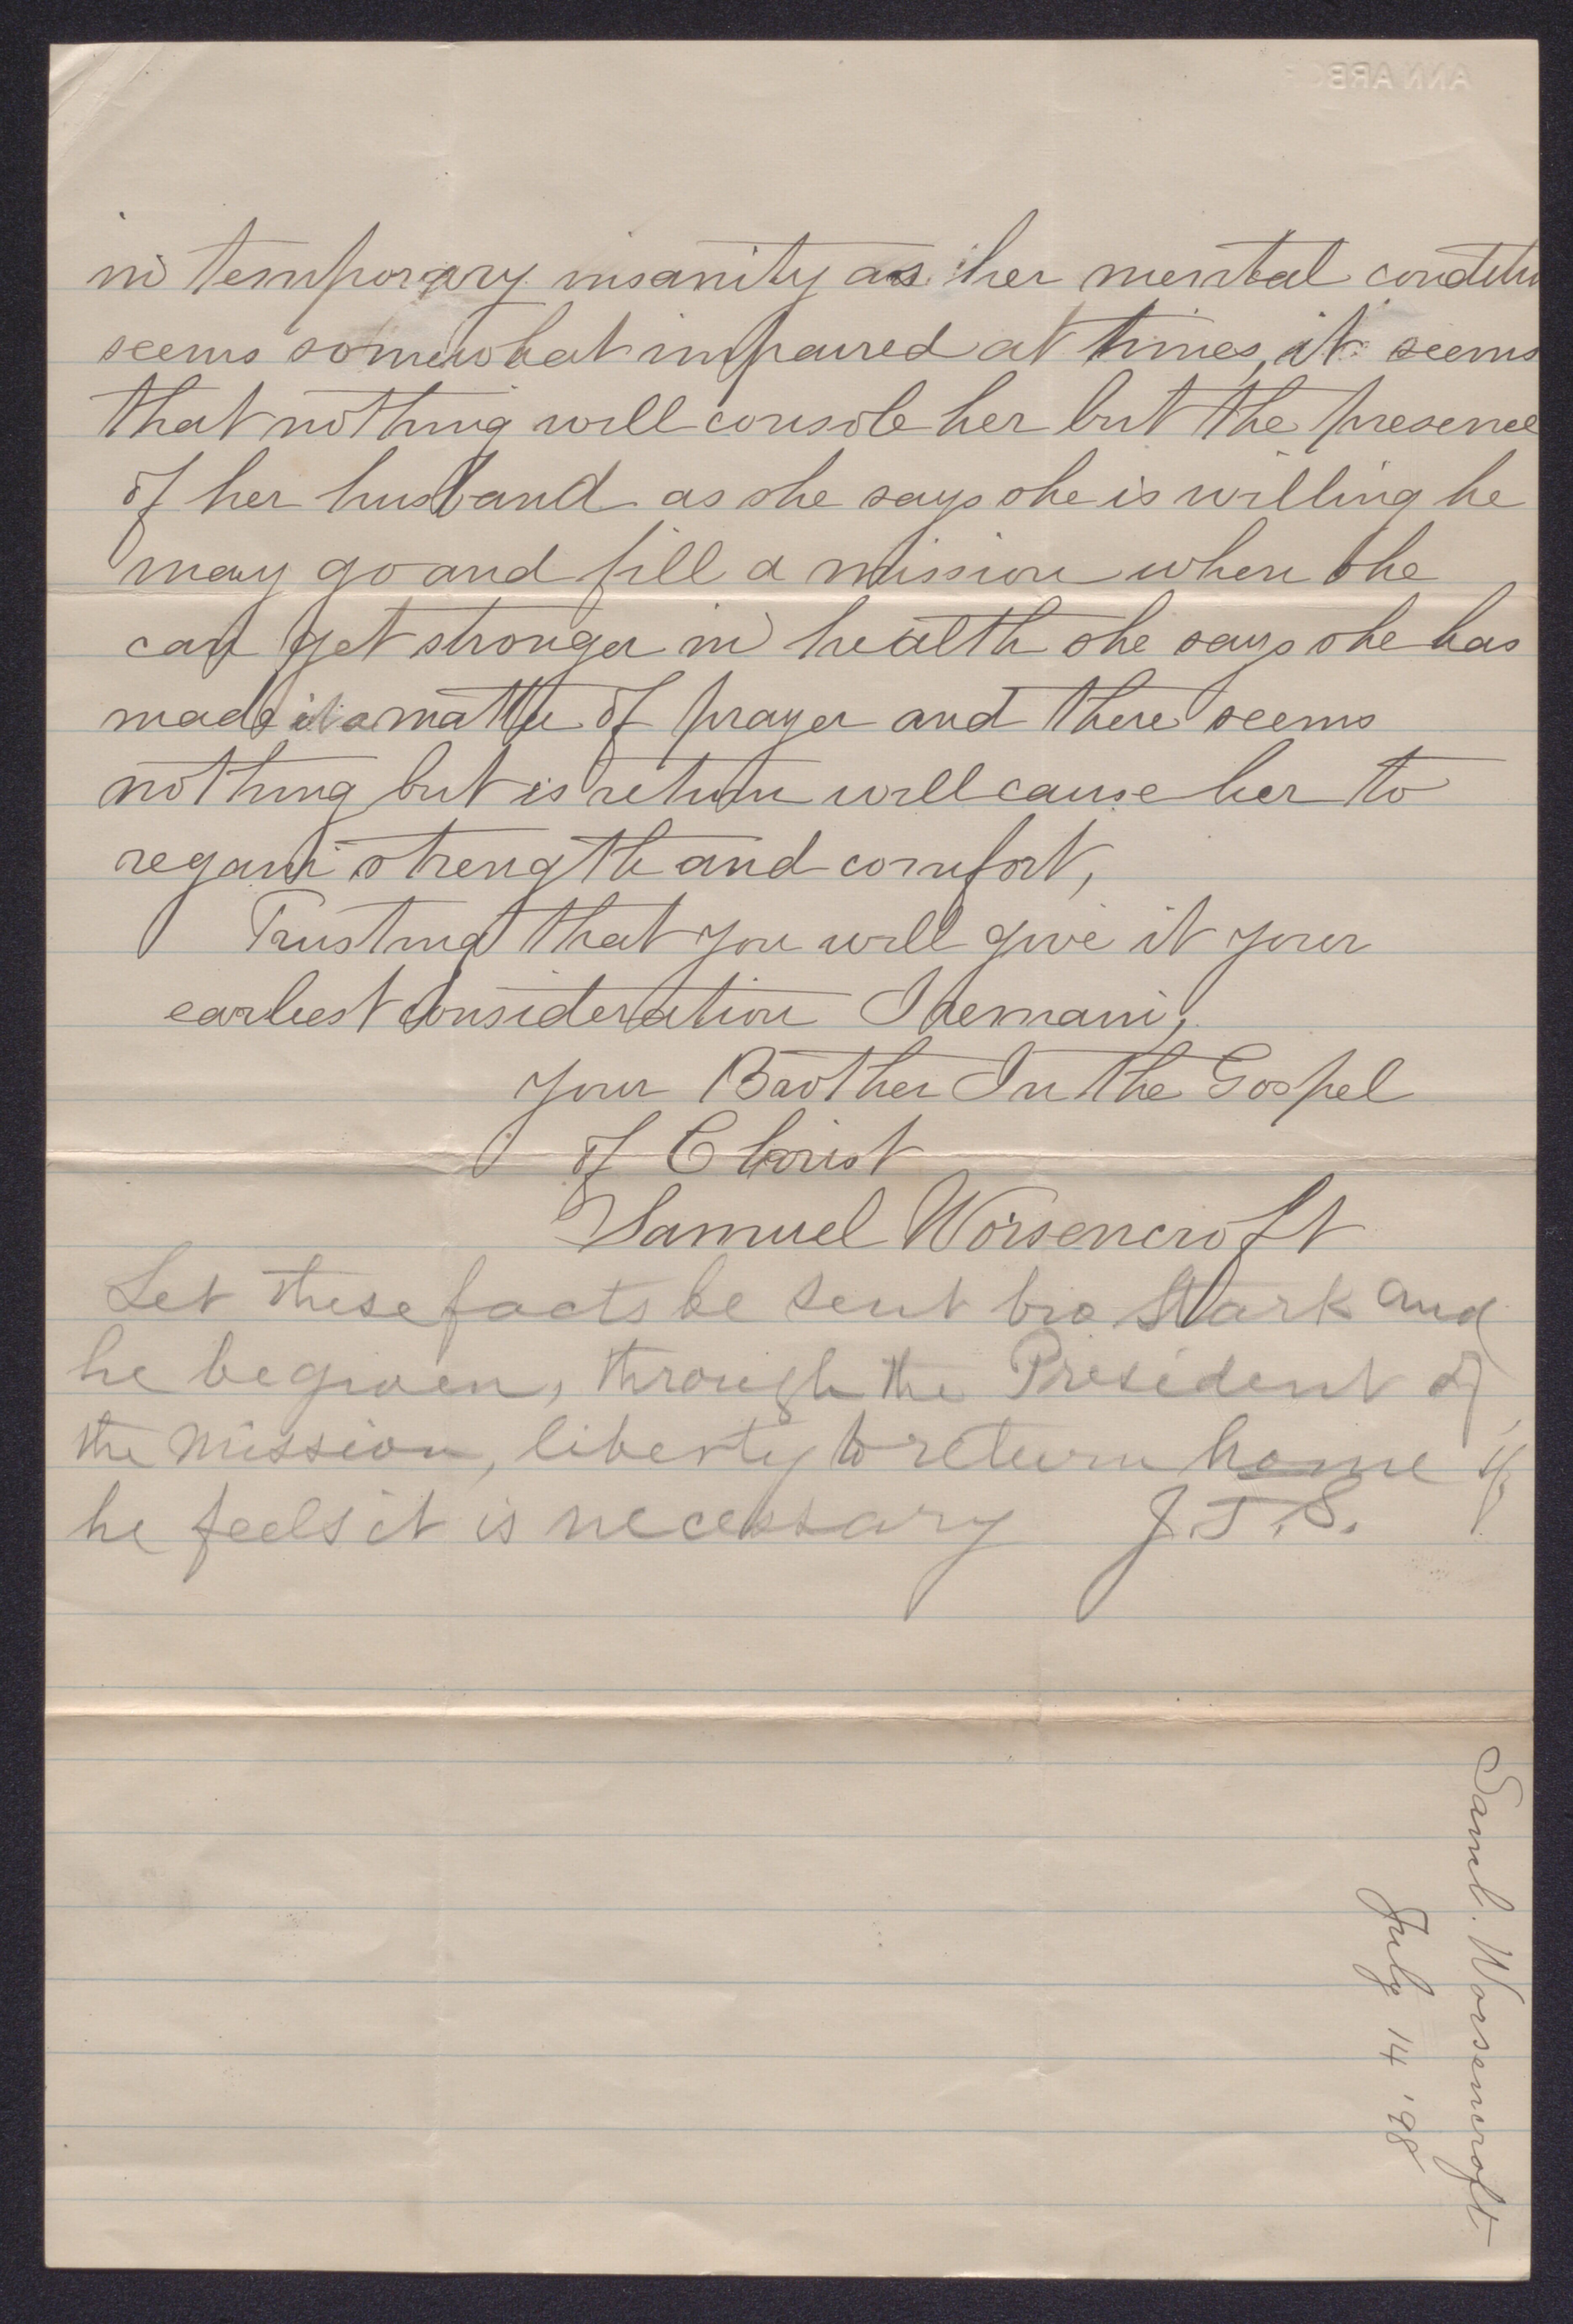 in temporary insanity as her mental conditin
seems somewhat impaired at times, it seems
that nothing will console her but the presence
of her husband as she says she is willing he
may go and fill a mission when she
can get stronger in health she says she has
made it a matter of prayer and there seems
nothing but is return will cause her to
regain strength and comfort,
Trusting that you will give it your
earliest consideration I remain,
your Brother In the Gospel
of Christ
Samuel Worsencroft
Let these facts be sent bro Stark and
he be given, through the President of
the Mission, liberty to return home if
he feels it is necessary J. F. S.
Samuel. Worsencroft
July 14 '98